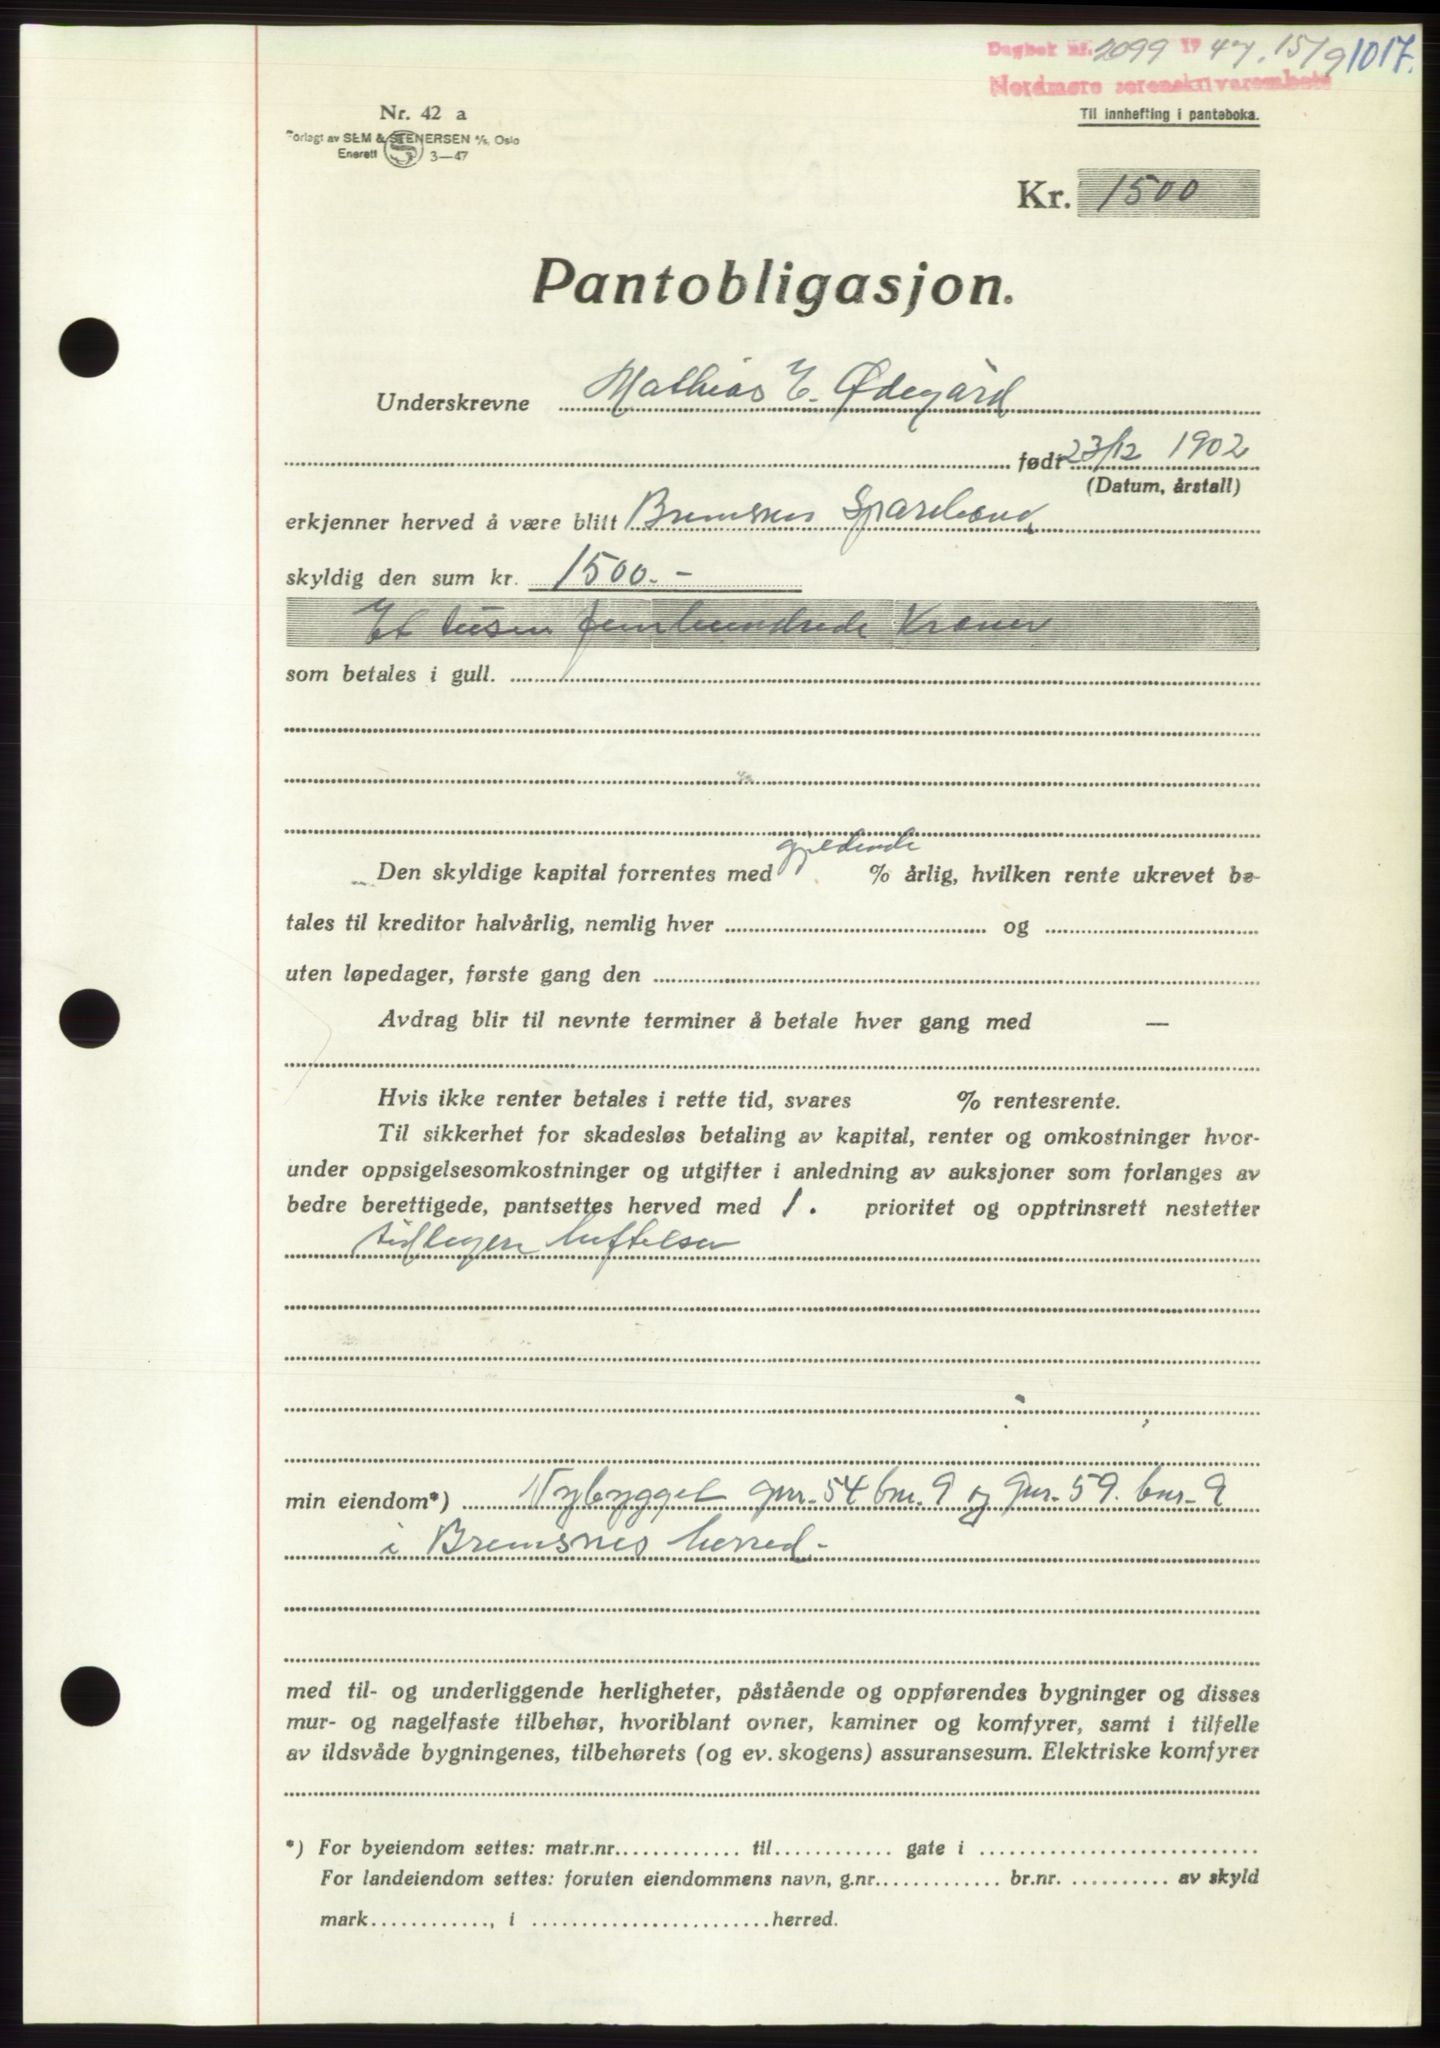 Dagbok nr. 2099 19 47. 15/9 1017.
Nordmøre sorenskriverembete
Nr. 42 a
Til innhefting i panteboka.
Forlagt av SEM & STENERSEN A/S, Oslo
Enerett 3—47
Kr. 1500
Pantobligasjon.
Underskrevne Mathias E. Ødegård
født 23/12 1902
(Datum, årstall)
erkjenner herved å være blitt Bremsnes Sparebank
skyldig den sum kr. 1500.-
Et tusen femhundrede Kroner
som betales i gull.
Den skyldige kapital forrentes med gjeldende % årlig, hvilken rente ukrevet be-
tales til kreditor halvårlig, nemlig hver og
uten løpedager, første gang den
Avdrag blir til nevnte terminer å betale hver gang med —
Hvis ikke renter betales i rette tid, svares % rentesrente.
Til sikkerhet for skadesløs betaling av kapital, renter og omkostninger hvor-
under oppsigelsesomkostninger og utgifter i anledning av auksjoner som forlanges av
bedre berettigede, pantsettes herved med 1. prioritet og opptrinsrett nestetter
tidligere heftelser
min eiendom*) Nybygget gnr. 54 bnr. 9 og gnr. 59. bnr. 9
i Bremsnes herred.-
med til- og underliggende herligheter, påstående og oppførendes bygninger og disses
mur- og nagelfaste tilbehør, hvoriblant ovner, kaminer og komfyrer, samt i tilfelle
av ildsvåde bygningenes, tilbehørets (og ev. skogens) assuransesum. Elektriske komfyrer
*) For byeiendom settes: matr.nr. til gate i
For landeiendom settes: foruten eiendommens navn, g.nr. br.nr. av skyld
mark , i herred.